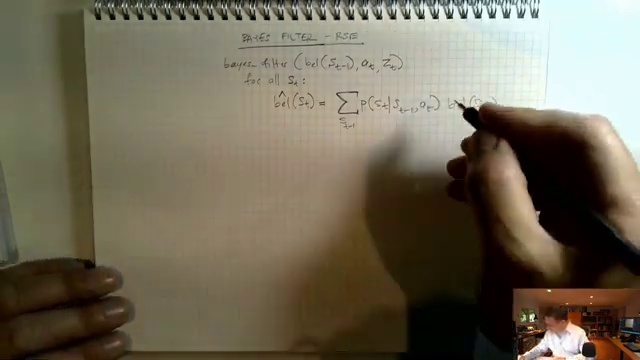 BAYES FILTER - RSE
bayes filter (bel(St-1), at, Zt)
for all St:
bel^(St) = ∑St-1 p(St|St-1, at) bel(St